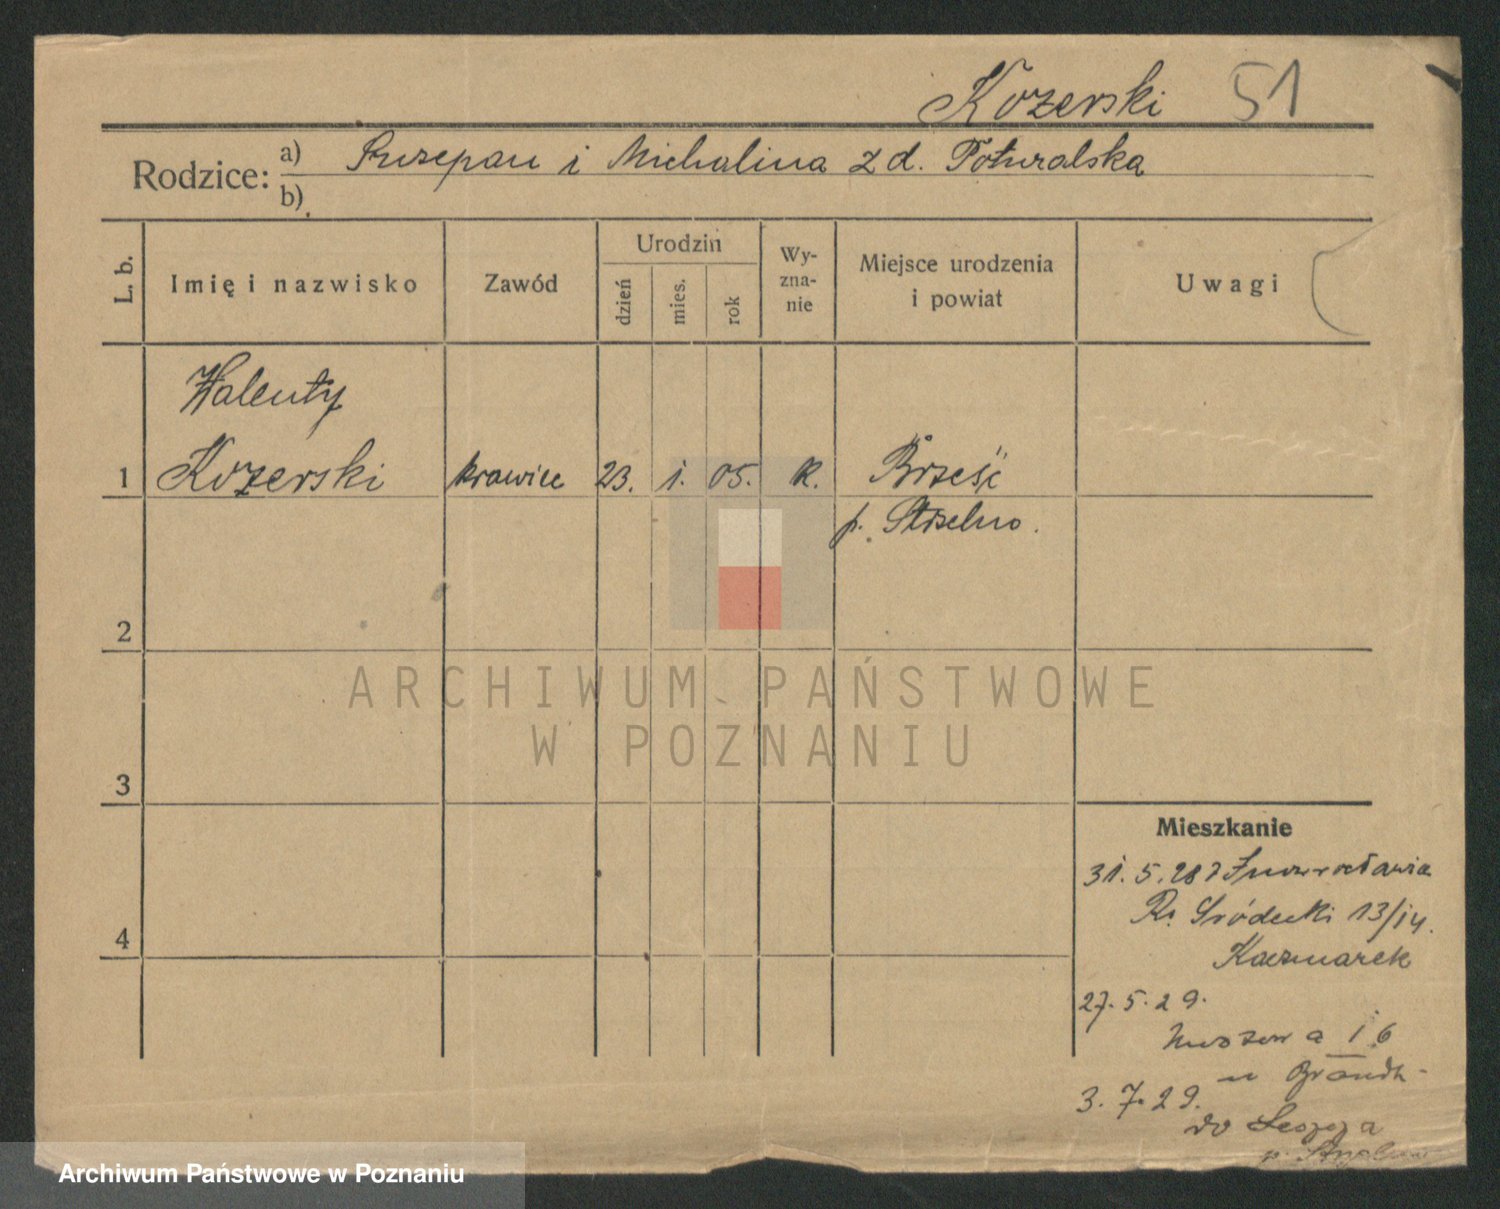 Kozerski 51
Rodzice: a) Szczepan i Michalina z d. Poturalska
b)
L. b. Imię i nazwisko Zawód Urodzin dzień mies. rok Wy-zna-nie Miejsce urodzenia i powiat Uwagi
Walenty
1 Kozerski krawiec 23. 1. 05. k. Brześć
p. Strzelno.
2
3
4
ARCHIWUM PAŃSTWOWE
W POZNANIU
Mieszkanie
31. 5. 28 z Inowrocławia
Ry. Śródecki 13/14.
Kaczmarek
27. 5. 29.
6
u
3. 7. 29.
do
p. Strzelno
Archiwum Państwowe w Poznaniu